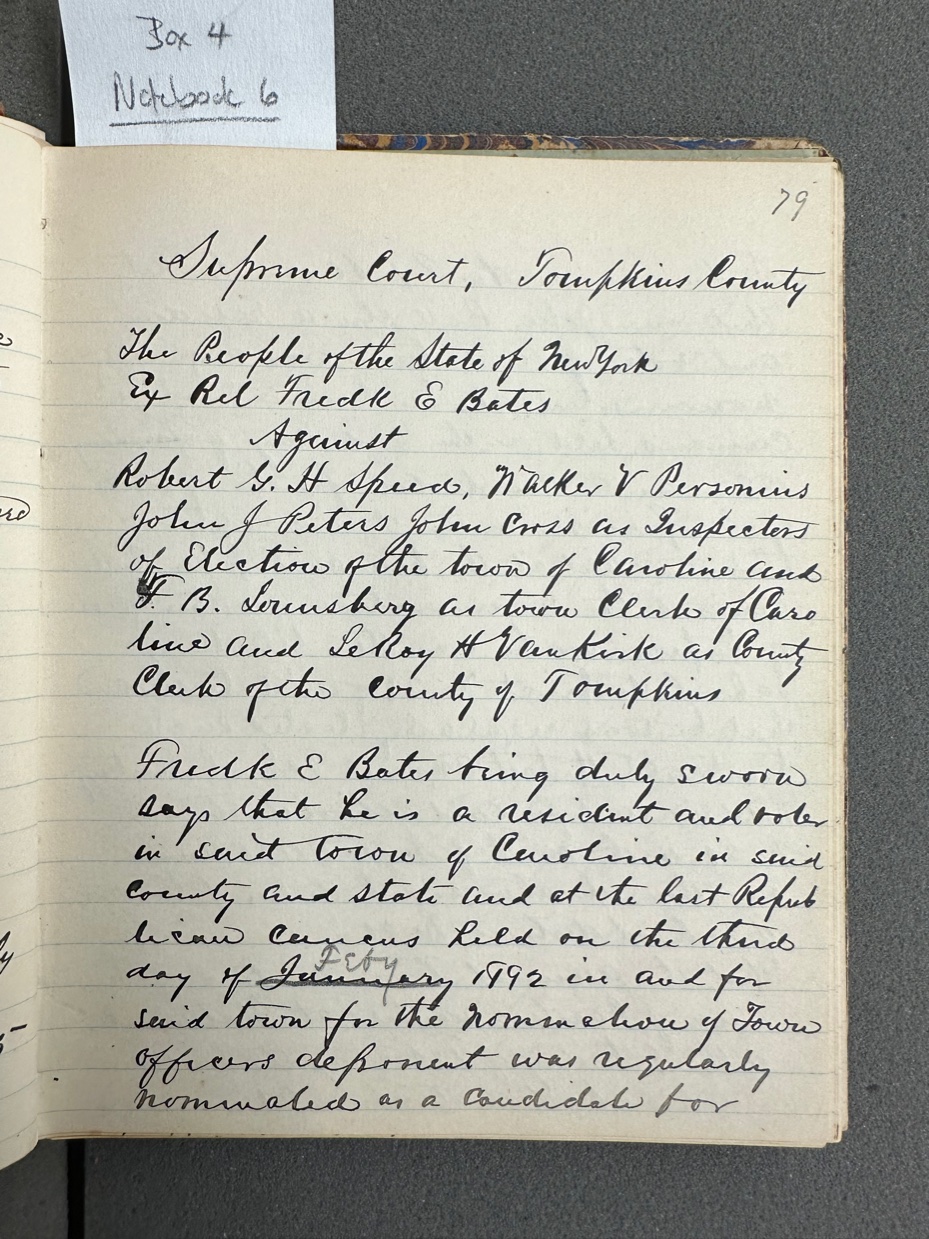 Box 4
Notebook 6
79
Supreme Court, Tompkins County
The People of the State of New York
Ex Rel Fredk E Bates
Against
Robert G. H Speed, Walker V Personius
John J Peters John Cross as Inspectors
of Election of the town of Caroline and
F. B. Lounsberg as town Clerk of Caro
line and LeRoy H VanKirk as County
Clerk of the County of Tompkins
Fredk E Bates being duly sworn
says that he is a resident and voter
in said town of Caroline in said
county and state and at the last Repub
lican caucus held on the third
Feby
day of January 1892 in and for
said town for the nomination of Town
officers deponent was regularly
nominated as a candidate for